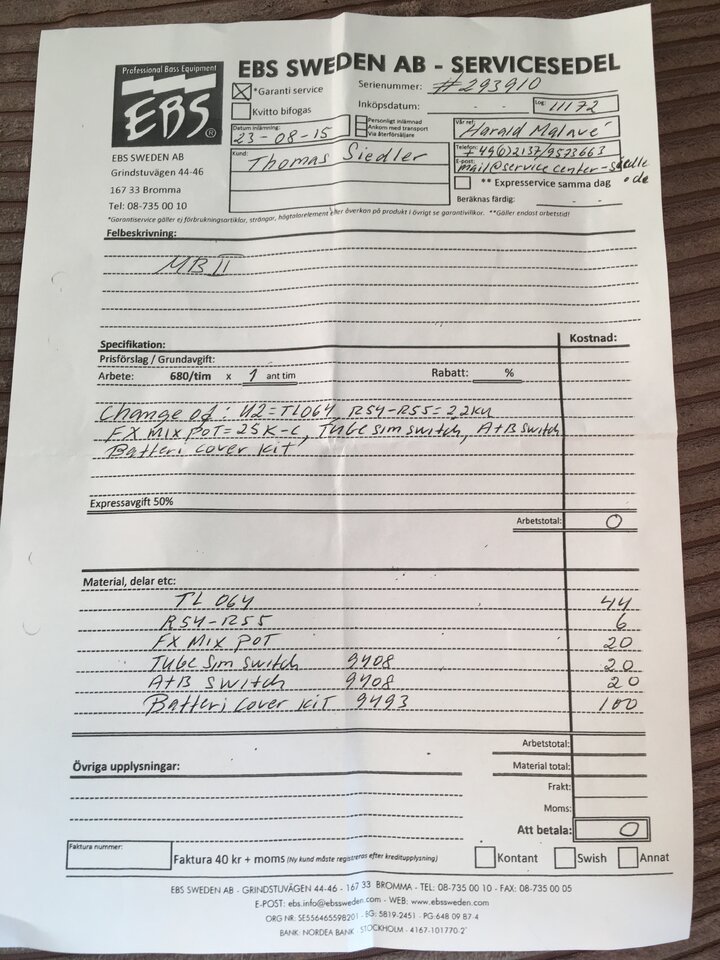 Professional Bass Equipment
EBS®
EBS SWEDEN AB - SERVICESEDEL
*Garanti service
Serienummer: #293910
Kvitto bifogas
Inköpsdatum: - -
Log: 11172
Datum Inlämning:
23-08-15
Personligt inlämnad
Ankom med transport
Via återförsäljare
Vår ref:
Harald Malavé
Kund:
Thomas Siedler
Telefon:
+49(0)2137/9523663
E-post:
mail@servicecenter-
.de
** Expresservice samma dag
Beräknas färdig: - -
EBS SWEDEN AB
Grindstuvägen 44-46
167 33 Bromma
Tel: 08-735 00 10
*Garantiservice gäller ej förbrukningsartiklar, strängar, högtalarelement eller överkan på produkt i övrigt se garantivillkor. **Gäller endast arbetstid!
Felbeskrivning:
MB II
Specifikation:
Kostnad:
Prisförslag / Grundavgift:
Arbete: 680/tim x 1 ant tim Rabatt: %
Change of: U2=TL064, R54-R55=22ku
FX MIX POT=25K-C, Tube sim switch, A+B switch
Batteri cover kit
Expressavgift 50%
Arbetstotal: 0
Material, delar etc:
TL 064 44
R54-R55 6
FX MIX POT 20
Tube sim switch 9408 20
A+B switch 9408 20
Batteri cover kit 9493 100
Arbetstotal:
Övriga upplysningar:
Material total:
Frakt:
Moms:
Att betala: 0
Faktura nummer:
Faktura 40 kr + moms (Ny kund måste registreras efter kreditupplysning)
Kontant
Swish
Annat
EBS SWEDEN AB - GRINDSTUVÄGEN 44-46 - 167 33 BROMMA - TEL: 08-735 00 10 - FAX: 08-735 00 05
E-POST: ebs.info@ebssweden.com - WEB: www.ebssweden.com
ORG NR: SE556465598201 - BG: 5819-2451 - PG: 648 09 87-4
BANK: NORDEA BANK - STOCKHOLM - 4167-101770-2